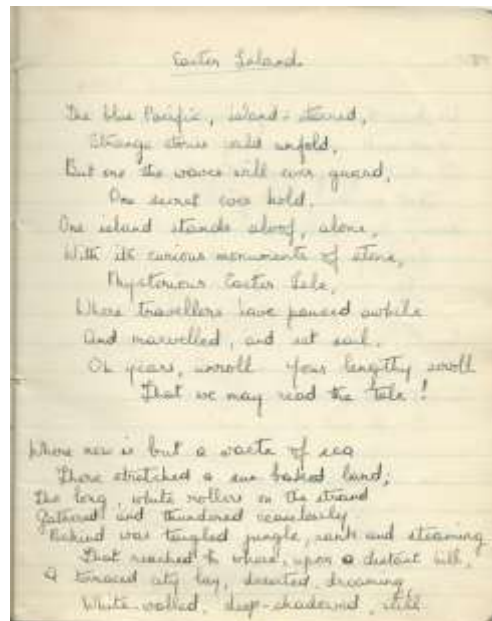 Easter Island.
The blue Pacific, island-starred,
Strange stories could unfold,
But one the waves will ever guard,
One secret ever hold.
One island stands aloof, alone,
With its curious monuments of stone,
Mysterious Easter Isle,
Where travellers have paused awhile
And marvelled, and set sail.
Oh years, unroll your lengthy scroll
That we may read the tale!
Where now is but a waste of sea
There stretched a sun baked land;
The long, white rollers on the strand
Gathered and thundered ceaselessly
Behind was tangled jungle, rank and steaming
That reached to where, upon a distant hill,
A terraced city lay, deserted, dreaming,
White-walled, deep-shadowed, still